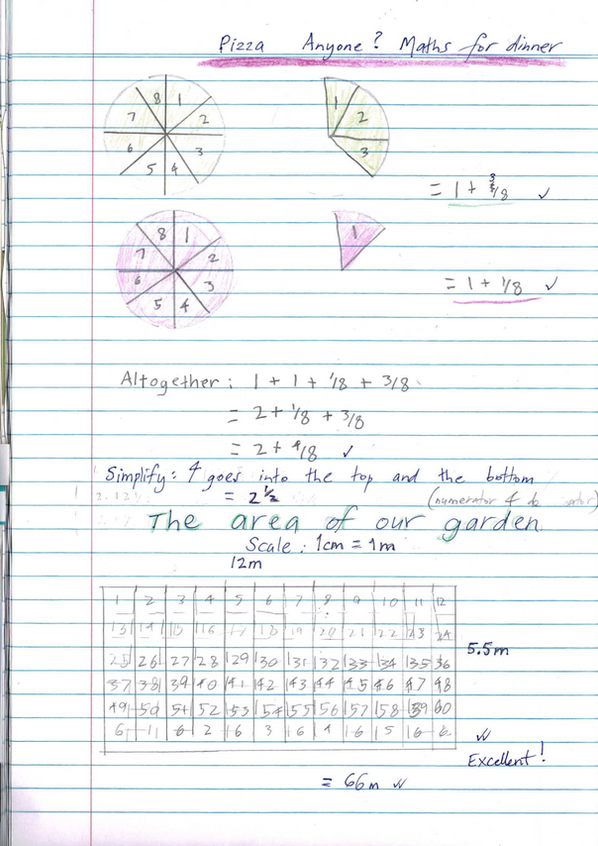 Pizza Anyone? Maths for dinner
8 1
7 2
6 3
5 4
1
2
3
= 1 + 3/8 ✓
8 1
7 2
6 3
5 4
1
= 1 + 1/8 ✓
Altogether: 1 + 1 + 1/8 + 3/8
= 2 + 1/8 + 3/8
= 2 + 4/8 ✓
Simplify: 4 goes into the top and the bottom
= 2 1/2 (numerator &
The area of our garden
Scale: 1cm = 1m
12m
1 2 3 4 5 6 7 8 9 10 11 12
13 14 15 16 17 18 19 20 21 22 23 24
25 26 27 28 29 30 31 32 33 34 35 36
5.5m
37 38 39 40 41 42 43 44 45 46 47 48
49 50 51 52 53 54 55 56 57 58 59 60
6 1 6 2 6 3 6 4 6 5 6 6
✓
Excellent!
= 66m ✓✓